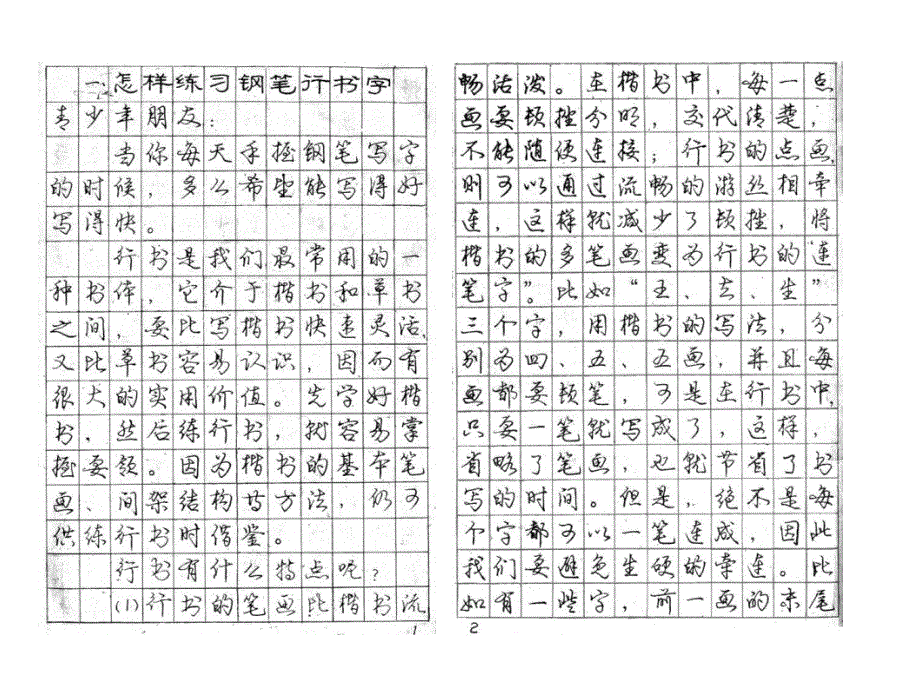 一、怎样练习钢笔行书字
青少年朋友:
当你每天手握钢笔写字
的时候,多么希望能写得好
写得快。
行书是我们最常用的一
种书体,它介于楷书和草书
之间,要比写楷书快速灵活,
又比草书容易认识,因而有
很大的实用价值。先学好楷
书,然后练行书,就容易掌
握要领。因为楷书的基本笔
画、间架结构等方法,仍可
供练行书时借鉴。
行书有什么特点呢?
(1)行书的笔画比楷书流
1
畅活泼。在楷书中,每一点
画要顿挫分明,交代清楚,
不能随便连接;行书的点画,
则可以通过流畅的游丝相牵
连,这样就减少了顿挫,将
楷书的多笔画变为行书的“连
笔字”。比如“王、去、生”
三个字,用楷书的写法,分
别为四、五、五画,并且每
画都要顿笔,可是在行书中,
只要一笔就写成了,这样,
省略了笔画,也就节省了书
写的时间。但是,绝不是每
个字都可以一笔连成,因此
我们要避免生硬的牵连。比
如有一些字,前一画的末尾
2